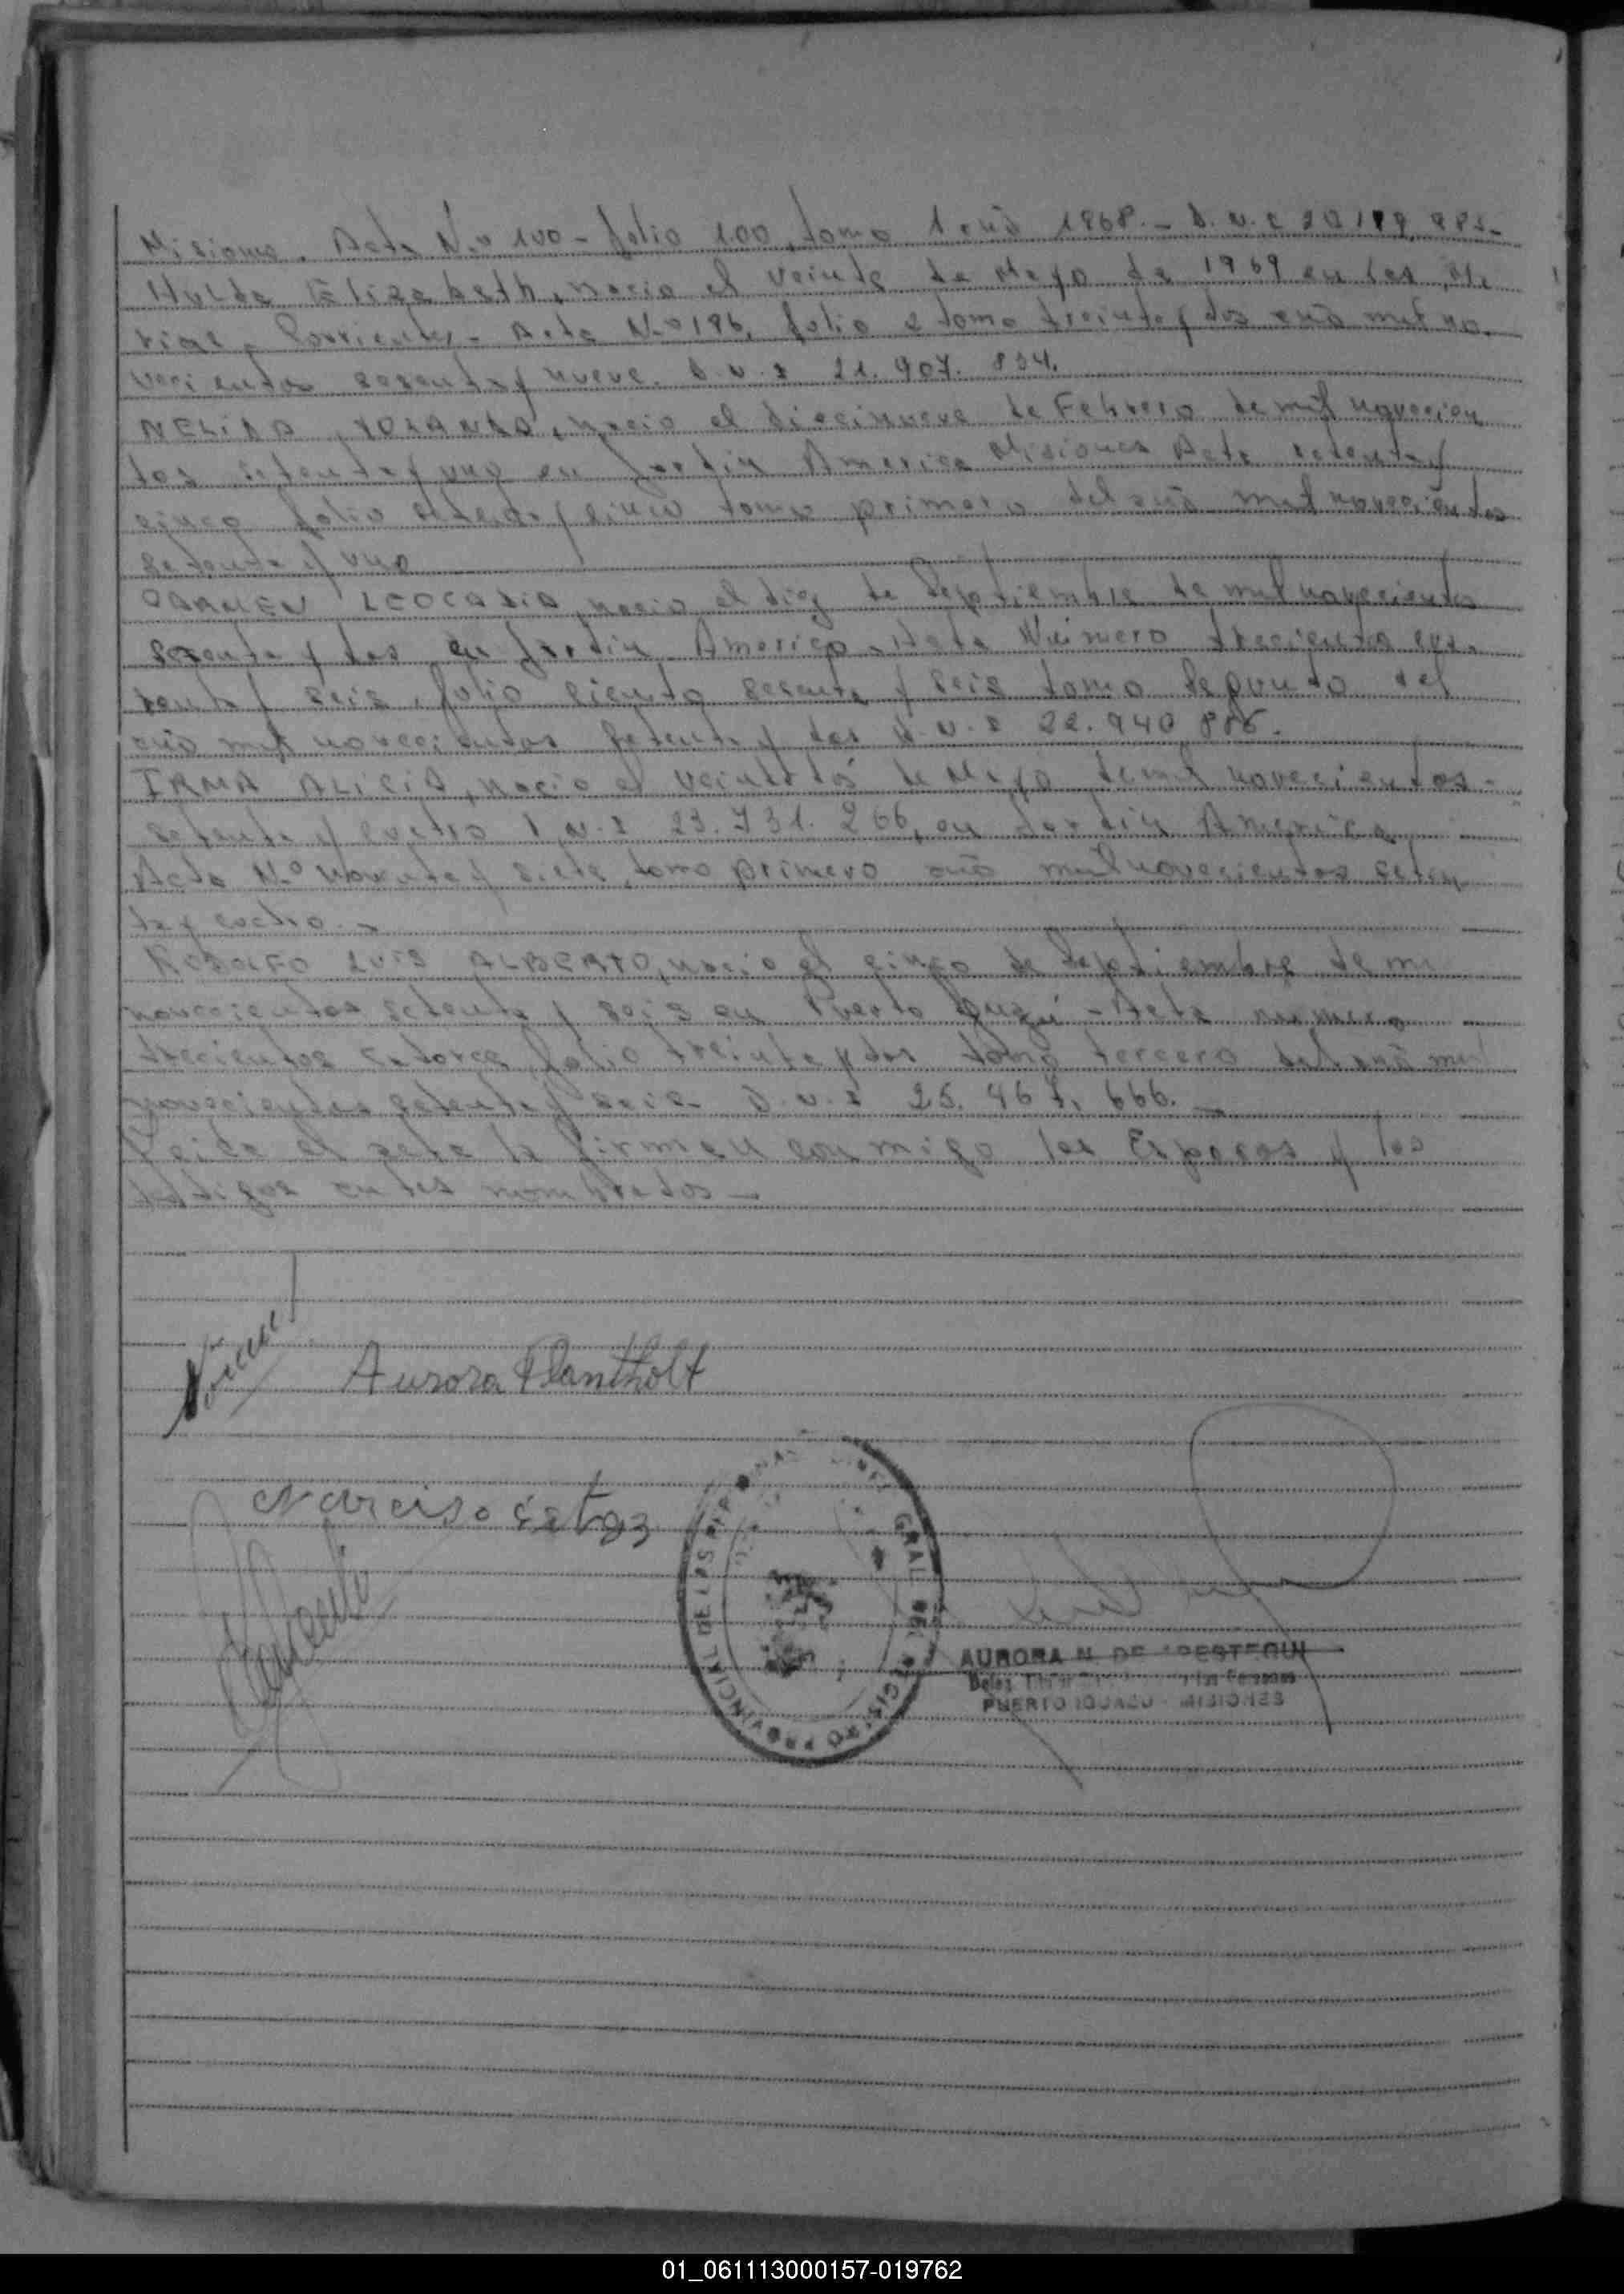 Misiones. Acta N.º 100 - folio 100, tomo 1 año 1968. - D.N.I 20.199.983.-
Hulda Elizabeth, nacio el veinte de Mayo de 1969 en Las Ma
rias, Corrientes - Acta N.º 196, folio 2 tomo treinta y dos año mil no.
vecientos sesenta y nueve. D.N.I 21.907.834.
NELIDA YOLANDA, nacio el diecinueve de Febrero de mil novecien
tos setenta y uno en Jardin America Misiones Acta setenta y
cinco folio setenta y cinco tomo primero del año mil novecientos
setenta y uno
CARMEN LEOCADIA, nacio el diez de Septiembre de mil novecientos
setenta y dos en Jardin America. Acta Número trecientos cua.
renta y seis, folio ciento sesenta y seis tomo segundo del
año mil novecientos setenta y dos D.N.I 22.940 886.
IRMA ALICIA, nacio el veintidós de Mayo de mil novecientos -
setenta y cuatro D.N.I 23.731.266, en Jardin America,
Acta N.º noventa y siete, tomo primero año mil novecientos seten
ta y cuatro. -
RODOLFO LUIS ALBERTO, nacio el cinco de Septiembre de mil
novecientos setenta y seis en Puerto Iguazú - Acta número
trecientos catorce, folio treinta y dos tomo tercero del año mil
novecientos setenta y seis D.N.I 25.467.666. -
Leida el acta la firman conmigo los Esposos y los
testigos antes nombrados -
Aurora Plantholt
Narciso
GRAL. DEL REGISTRO PROVINCIAL DE LAS PERSONAS
AURORA N. DE
PUERTO IGUAZU - MISIONES
01_061113000157-019762